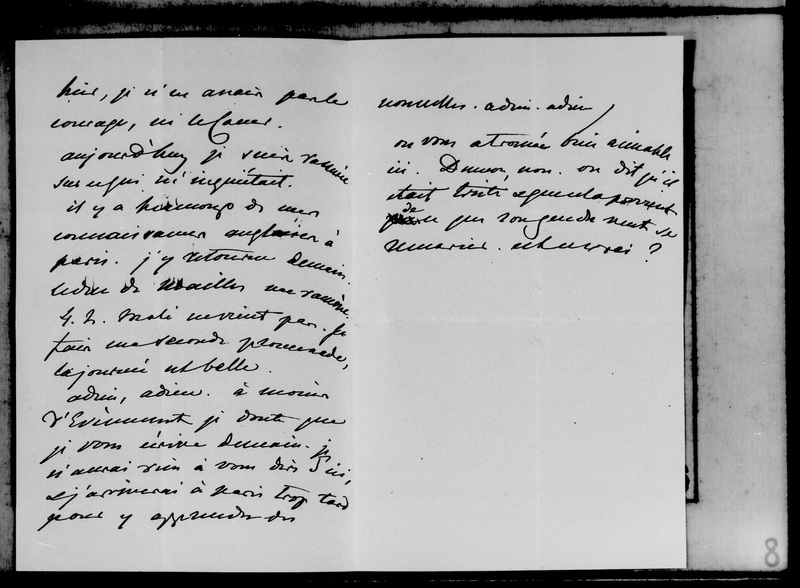 hier, je n'en avais pas le
courage, ni le cœur.
aujourd'huy je suis
sur ce qui m'inquiétait.
il y a beaucoup de mes
connaissances anglaises à
paris. j'y retourne demain.
le duc de noailles me ramène.
Mole ne vient pas. je
fais ma seconde promenade,
la journée est belle.
adieu, adieu. à moins
d'Evènement je doute que
je vous écrive demain. je
n'aurai rien à vous dire d'ici,
et j'arriverai à paris trop tard
pour y apprendre des
nouvelles. adieu. adieu
on vous a trouvé bien aimable
ici. Dumon, non. on dit qu'il
était triste et que cela
de que son gendre veut se
remarier. est-ce vrai ?
8